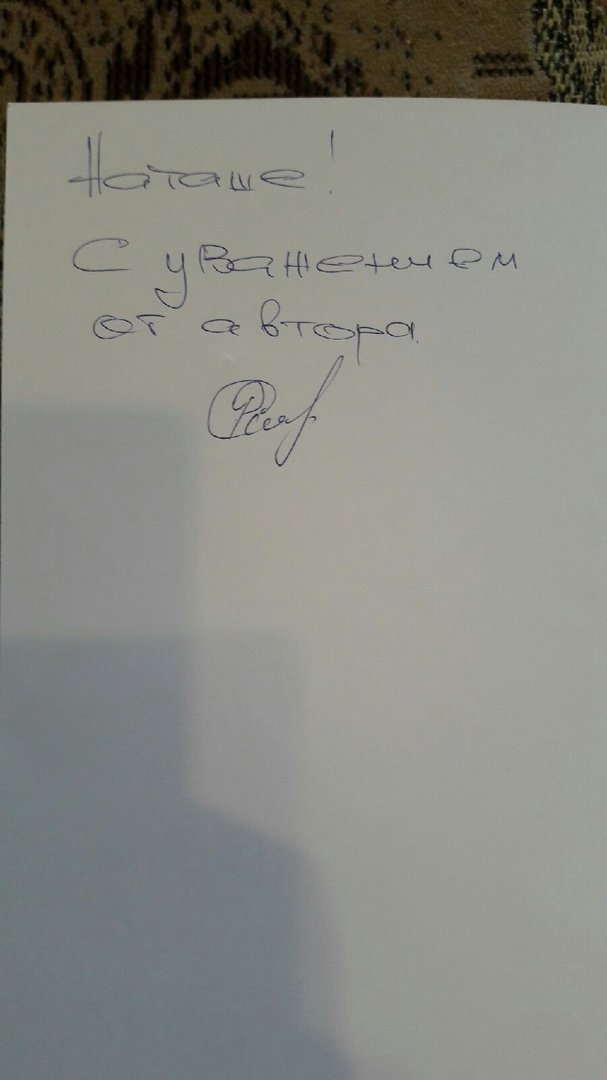 Наташе!
С уважением
от автора.